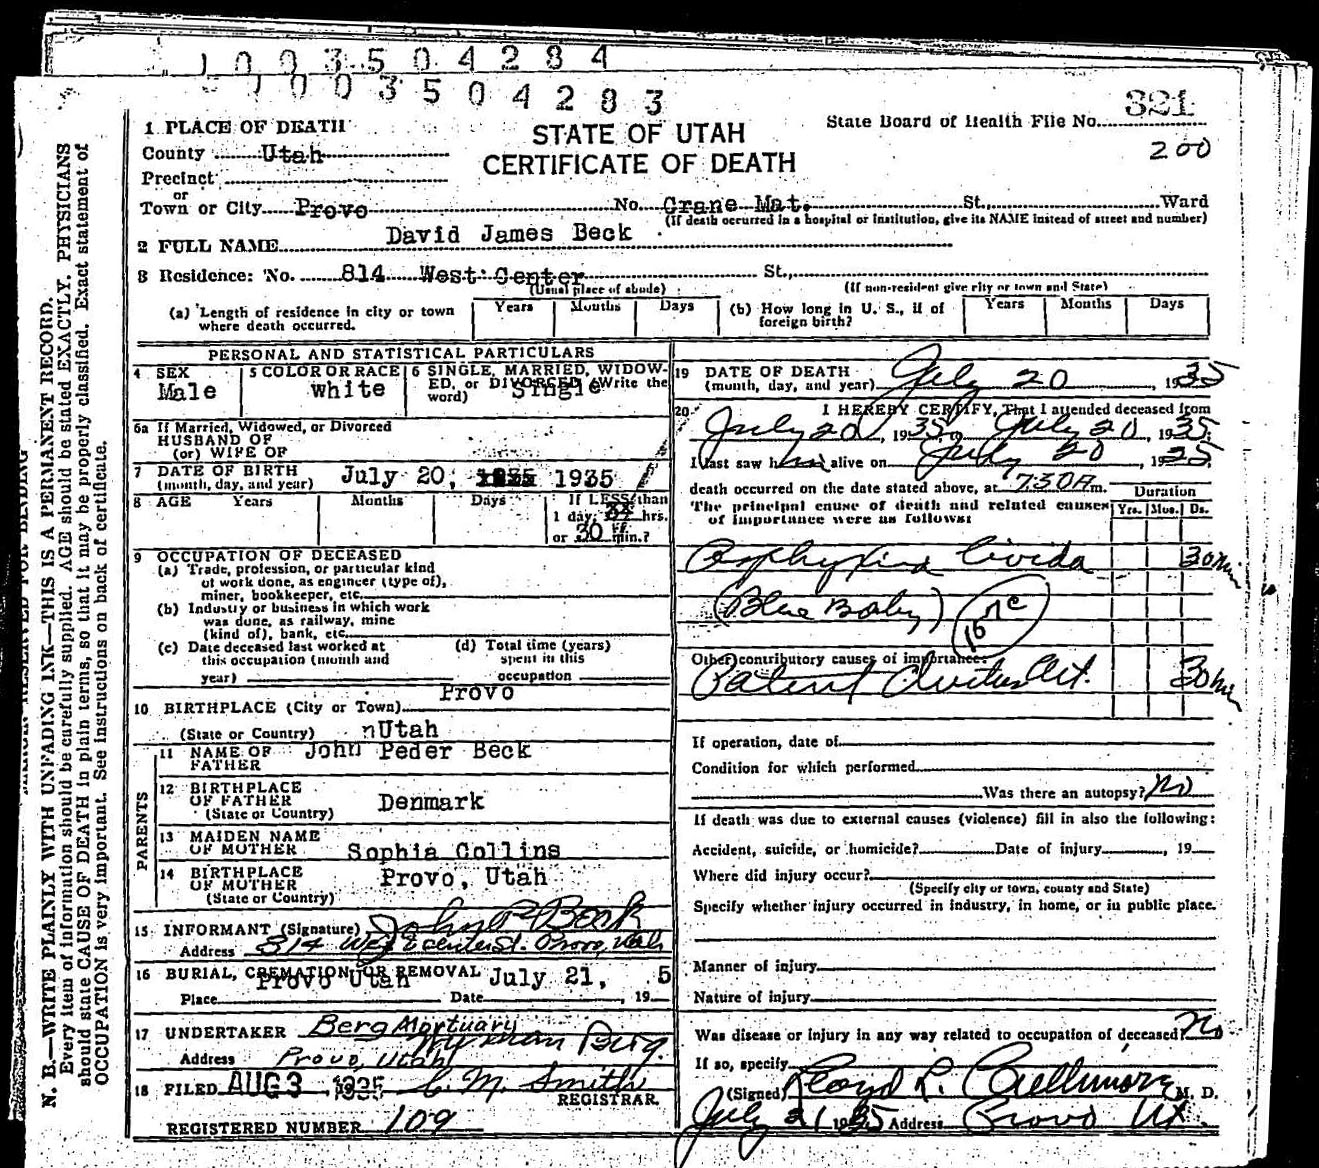 1 0 0 3 5 0 4 2 8 4
0 0 0 3 5 0 4 2 8 3
321
State Board of Health File No.
200
STATE OF UTAH
CERTIFICATE OF DEATH
1 PLACE OF DEATH
County Utah
Precinct
or
Town or City Provo No. Crane Mat. St., Ward
(If death occurred in a hospital or institution, give its NAME instead of street and number)
2 FULL NAME David James Beck
3 Residence: No. 814 West Center St.,
(Usual place of abode) (If non-resident give city or town and State)
(a) Length of residence in city or town where death occurred. Years Months Days (b) How long in U. S., if of foreign birth? Years Months Days
PERSONAL AND STATISTICAL PARTICULARS
4 SEX Male
5 COLOR OR RACE White
6 SINGLE, MARRIED, WIDOWED, or DIVORCED (Write the word) Single
6a If Married, Widowed, or Divorced
HUSBAND OF
(or) WIFE OF
7 DATE OF BIRTH (month, day, and year) July 20, 1935
8 AGE Years Months Days If LESS than
1 day, hrs.
or 30 min.?
9 OCCUPATION OF DECEASED
(a) Trade, profession, or particular kind
of work done, as engineer (type of),
miner, bookkeeper, etc.
(b) Industry or business in which work
was done, as railway, mine
(kind of), bank, etc.
(c) Date deceased last worked at
this occupation (month and
year)
(d) Total time (years)
spent in this
occupation
10 BIRTHPLACE (City or Town) Provo
(State or Country) nUtah
PARENTS
11 NAME OF FATHER John Peder Beck
12 BIRTHPLACE OF FATHER (State or Country) Denmark
13 MAIDEN NAME OF MOTHER Sophia Collins
14 BIRTHPLACE OF MOTHER (State or Country) Provo, Utah
15 INFORMANT (Signature) John P Beck
Address 814 West center St. Provo, Utah
16 BURIAL, CREMATION OR REMOVAL
Place Provo Utah Date July 21, 19 5
17 UNDERTAKER Berg Mortuary
Address Provo, Utah
18 FILED AUG 3 1935 C. M. Smith
REGISTRAR.
REGISTERED NUMBER 109
19 DATE OF DEATH
(month, day, and year) July 20, 1935
20 I HEREBY CERTIFY, That I attended deceased from
July 20, 1935, to July 20, 1935.
I last saw him alive on July 20, 1935
death occurred on the date stated above, at 7:30 A m.
The principal cause of death and related causes
of importance were as follows:
Duration
Yrs. Mos. Ds.
Asphyxia Livida 30 min
(Blue Baby) 157c
Other contributory causes of importance:
Patent Ductus Art. 30 mi
If operation, date of
Condition for which performed
Was there an autopsy? No
If death was due to external causes (violence) fill in also the following:
Accident, suicide, or homicide? Date of injury , 19
Where did injury occur?
(Specify city or town, county and State)
Specify whether injury occurred in industry, in home, or in public place.
Manner of injury
Nature of injury
Was disease or injury in any way related to occupation of deceased? No
If so, specify
(Signed) Lloyd L. Cullimore M. D.
July 21 1935 Address Provo Ut.
N. B.—WRITE PLAINLY WITH UNFADING INK—THIS IS A PERMANENT RECORD.
Every item of information should be carefully supplied. AGE should be stated EXACTLY. PHYSICIANS
should state CAUSE OF DEATH in plain terms, so that it may be properly classified. Exact statement of
OCCUPATION is very important. See instructions on back of certificate.